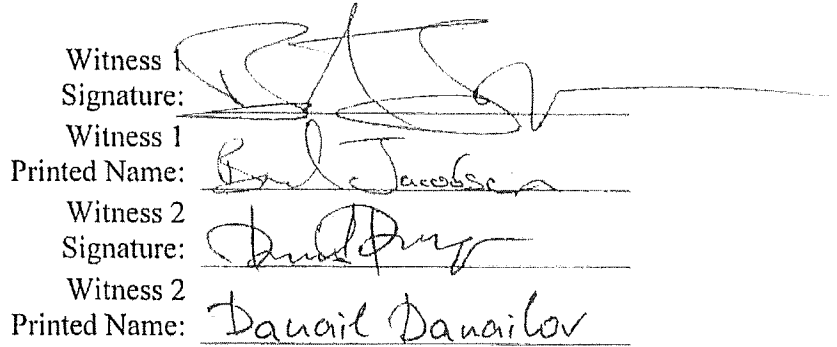 Witness 1
Signature:
Witness 1
Printed Name: Jacobsen
Witness 2
Signature:
Witness 2
Printed Name: Danail Danailov